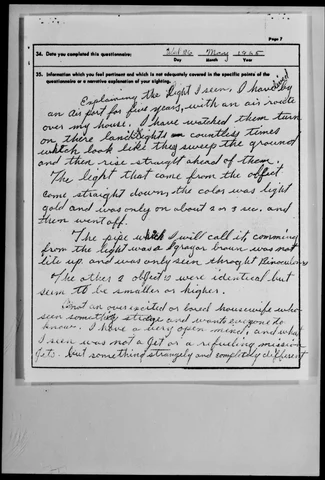 Page 7
34. Date you completed this questionnaire: Wed 26 May 1965
Day Month Year
35. Information which you feel pertinent and which is not adequately covered in the specific points of the
questionnaire or a narrative explanation of your sighting.
Explaining the light I seen. I have lived by
an air port for five years, with an air route
over my house. I have watched them turn
on there landlights countless times
which look like they sweep the ground
and then rise straight ahead of them.
The light that came from the object
come straight down, the color was light
gold and was only on about 2 or 3 sec. and
then went off.
The pipe which I will call it, comming
from the light was a gray or brown was not
lite up. and was only seen throught binoculars
The other 2 objects were identical but
seem to be smaller or higher.
not an overexcited or bored housewife who
seen something strange and wants everyone to
know. I have a very open mind, and what
I seen was not a jet or a refueling mission
jets. but something strangely and completely different